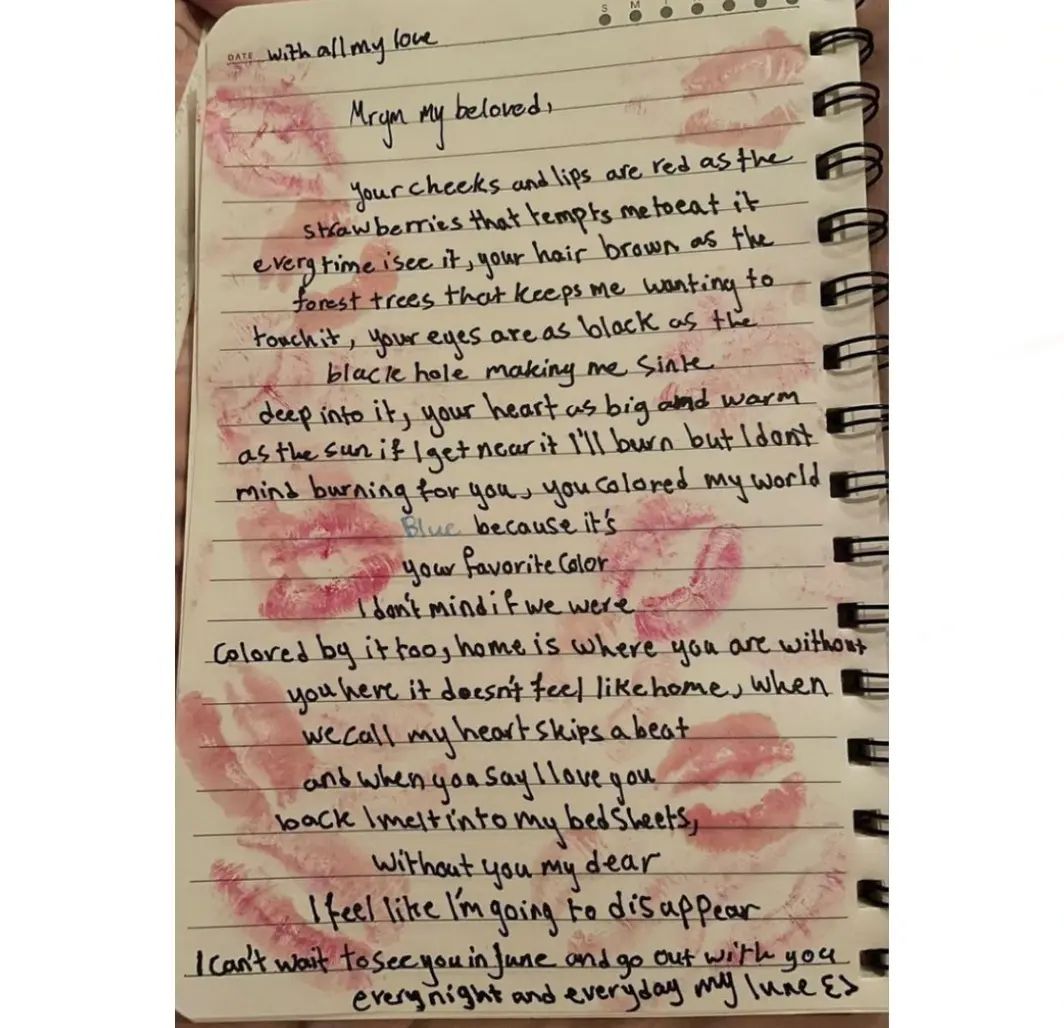 S M T
DATE with all my love
Mrym my beloved,
your cheeks and lips are red as the
strawberries that tempts me to eat it
every time i see it, your hair brown as the
forest trees that keeps me wanting to
touch it, your eyes are as black as the
black hole making me sink
deep into it, your heart as big and warm
as the sun if I get near it I'll burn but I dont
mind burning for you, you colored my world
Blue because it's
your favorite color
I don't mind if we were
colored by it too, home is where you are without
you here it doesn't feel like home, when
we call my heart skips a beat
and when you say I love you
back I melt into my bed sheets,
without you my dear
I feel like I'm going to disappear
I can't wait to see you in June and go out with you
every night and everyday my lune ع>